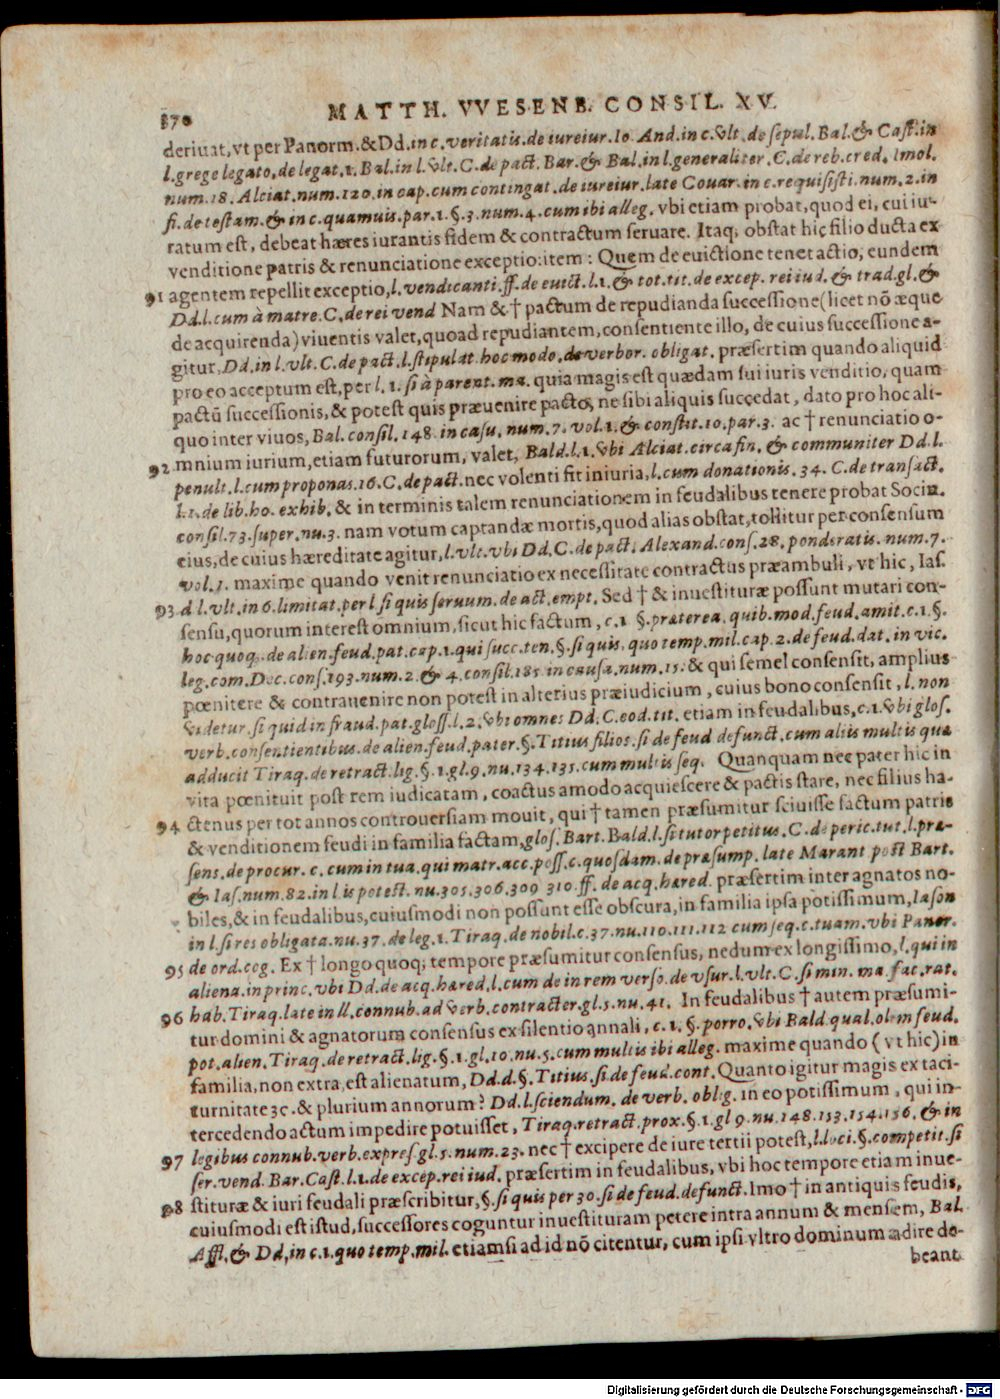 370 MATTH. VVESENB. CONSIL. XV.
deriuat, vt per Panorm. & Dd. in c. veritatis. de iureiur. Io. And. in c. vlt. de sepul. Bal. & Cast. in
l. grege legato, de legat. 1. Bal. in l. vlt. C. de pact. Bar. & Bal. in l. generaliter. C. de reb. cred. Imol.
num. 18. Alciat. num. 120. in cap. cum contingat. de iureiur. late Couar. in c. requisisti. num. 2. in
fi. de testam. & in c. quamuis. par. 1. §. 3. num. 4. cum ibi alleg. vbi etiam probat, quod ei, cui iu-
ratum est, debeat hæres iurantis fidem & contractum seruare. Itaq; obstat hic filio ducta ex
venditione patris & renunciatione exceptio: item: Quem de euictione tenet actio, eundem
91 agentem repellit exceptio, l. vendicanti. ff. de euict. l. 1. & tot. tit. de excep. rei iud. & trad. gl. &
Dd. l. cum à matre. C. de rei vend Nam & † pactum de repudianda successione (licet nõ æque
de acquirenda) viuentis valet, quoad repudiantem, consentiente illo, de cuius successione a-
gitur, Dd. in l. vlt. C. de pact. l. stipulat. hoc modo. de verbor. obligat. præsertim quando aliquid
pro eo acceptum est, per l. 1. si à parent. ma. quia magis est quædam sui iuris venditio, quam
pactũ successionis, & potest quis præuenire pacto, ne sibi aliquis succedat, dato pro hoc ali-
quo inter viuos, Bal. consil. 148. in casu. num. 7. vol. 1. & constit. 10. par. 3. ac † renunciatio o-
92 mnium iurium, etiam futurorum, valet, Bald. l. 1. vbi Alciat. circa fin. & communiter Dd. l.
penult. l. cum proponas. 16. C. de pact. nec volenti fit iniuria, l. cum donationis. 34. C. de transact.
l. 1. de lib. ho. exhib. & in terminis talem renunciationem in feudalibus tenere probat Socin.
consil. 73. super. nu. 3. nam votum captandæ mortis, quod alias obstat, tollitur per consensum
eius, de cuius hæreditate agitur, l. vlt. vbi Dd. C. de pact. Alexand. cons. 28. ponderatis. num. 7.
vol. 1. maxime quando venit renunciatio ex necessitate contractus præambuli, vt hic, Ias.
93 d l. vlt. in 6. limitat. per l si quis seruum. de act. empt. Sed † & inuestituræ possunt mutari con-
sensu, quorum interest omnium, sicut hic factum, c. 1 §. præterea. quib. mod. feud. amit. c. 1. §.
hoc quoq;. de alien. feud. pat. cap. 1. qui succ. ten. §. si quis. quo temp. mil. cap. 2. de feud. dat. in vic.
leg. com. Dec. cons. 193. num. 2. & 4. consil. 185. in causa. num. 15. & qui semel consensit, amplius
pœnitere & contrauenire non potest in alterius præiudicium, cuius bono consensit, l. non
videtur. si quid in fraud. pat. gloss. l. 2. vbi omnes Dd. C. eod. tit. etiam in feudalibus, c. 1. vbi glos.
verb. consentientibus. de alien. feud. pater. §. Titius filios. si de feud defunct. cum aliis multis quæ
adducit Tiraq. de retract. lig. §. 1. gl. 9. nu. 134. 135. cum multis seq. Quanquam nec pater hic in
vita pœnituit post rem iudicatam, coactus amodo acquiescere & pactis stare, nec filius ha-
94 ctenus per tot annos controuersiam mouit, qui † tamen præsumitur sciuisse factum patris
& venditionem feudi in familia factam, glos. Bart. Bald. l. si tutor petitus. C. de peric. tut. l. præ-
sens. de procur. c. cum in tua. qui matr. acc. poss. c. quosdam. de præsump. late Marant post Bart.
& Ias. num. 82. in l. is potest. nu. 305. 306. 309 310. ff. de acq. hæred. præsertim inter agnatos no-
biles, & in feudalibus, cuiusmodi non possunt esse obscura, in familia ipsa potissimum, Iason
in l. si res obligata. nu. 37. de leg. 1. Tiraq. de nobil. c. 37. nu. 110. 111. 112 cum seq. c. tuam. vbi Panor.
95 de ord. cog. Ex † longo quoq; tempore præsumitur consensus, nedum ex longissimo, l. qui in
aliena. in princ. vbi Dd. de acq. hæred. l. cum de in rem verso. de vsur. l. vlt. C. si min. ma. fac. rat.
hab. Tiraq. late in ll. connub. ad verb. contracter. gl. 5. nu. 41. In feudalibus † autem præsumi-
96 tur domini & agnatorum consensus ex silentio annali, c. 1. §. porro. vbi Bald. qual. olem feud.
pot. alien. Tiraq. de retract. lig. §. 1. gl. 10. nu. 5. cum multis ibi alleg. maxime quando (vt hic) in
familia, non extra, est alienatum, Dd. d. §. Titius. si de feud. cont. Quanto igitur magis ex taci-
turnitate 30. & plurium annorum? Dd. l. sciendum. de verb. oblig. in eo potissimum, qui in-
tercedendo actum impedire potuisset, Tiraq. retract. prox. §. 1. gl 9. nu. 148. 153. 154. 156. & in
legibus connub. verb. expres gl. 5. num. 23. nec † excipere de iure tertii potest, l. loci. §. competit. si
97 ser. vend. Bar. Cast. l. 1. de excep. rei iud. præsertim in feudalibus, vbi hoc tempore etiam inue-
stituræ & iuri feudali præscribitur, §. si quis per 30. si de feud. defunct. Imo † in antiquis feudis,
98 cuiusmodi est istud, successores coguntur inuestituram petere intra annum & mensem, Bal.
Affl. & Dd. in c. 1. quo temp. mil. etiamsi ad id nõ citentur, cum ipsi vltro dominum adire de-
beant
Digitalisierung gefördert durch die Deutsche Forschungsgemeinschaft - DFG